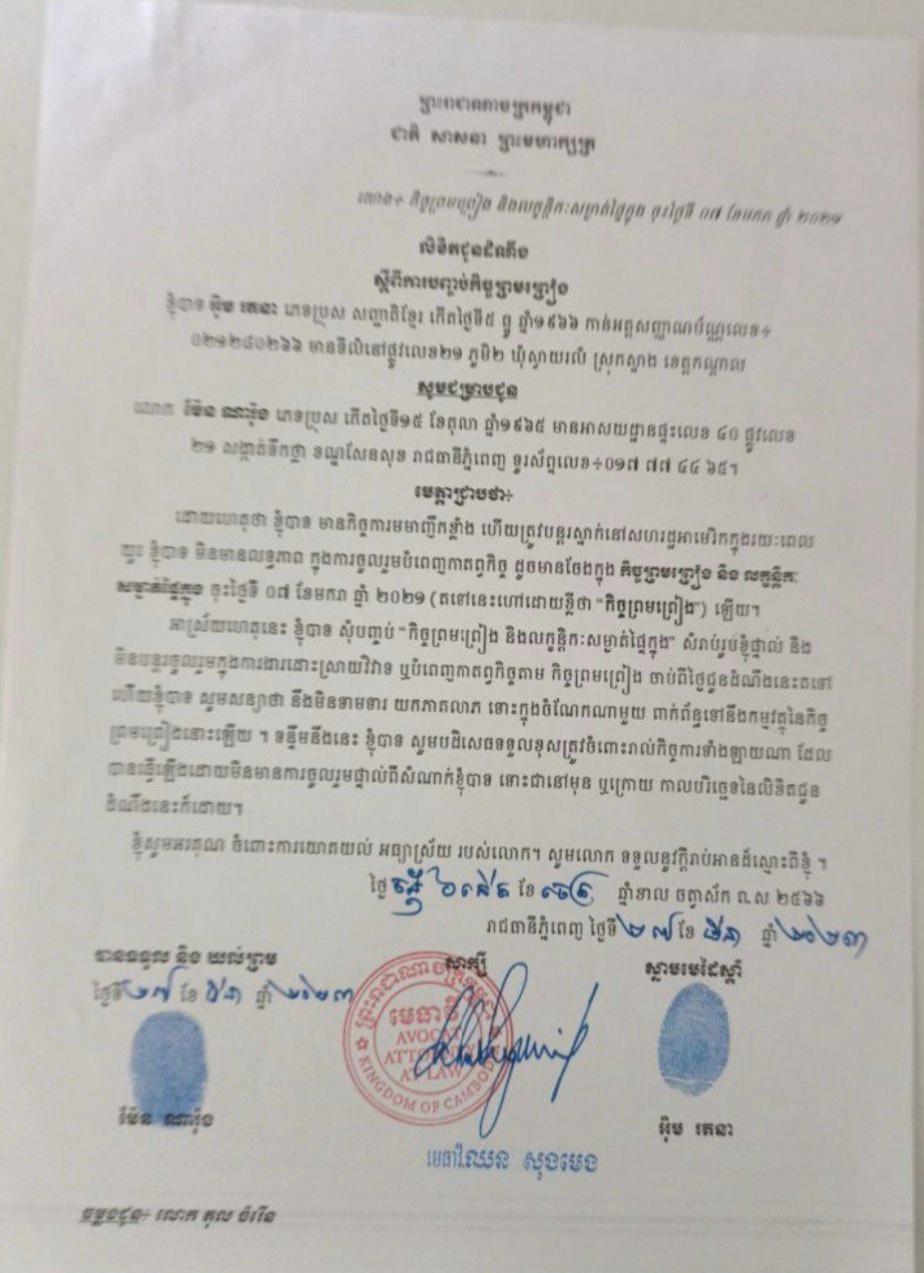 ព្រះរាជាណាចក្រកម្ពុជា
ជាតិ សាសនា ព្រះមហាក្សត្រ
យោង÷ កិច្ចព្រមព្រៀង និងលក្ខន្តិកៈសម្ងាត់ផ្ទៃក្នុង ចុះថ្ងៃទី ០៧ ខែមករា ឆ្នាំ ២០២១
លិខិតជូនដំណឹង
ស្តីពីការបញ្ចប់កិច្ចព្រមព្រៀង
ខ្ញុំបាទ អ៊ិម រតនា ភេទប្រុស សញ្ជាតិខ្មែរ កើតថ្ងៃទី៥ ធ្នូ ឆ្នាំ១៩៦៦ កាន់អត្តសញ្ញាណប័ណ្ណលេខ÷
០២១២៨០២៦៦ មានទីលំនៅផ្លូវលេខ២១ ភូមិ២ ឃុំស្វាយរលំ ស្រុកស្អាង ខេត្តកណ្តាល
សូមជម្រាបជូន
លោក ម៉ែន ណារ៉ុង ភេទប្រុស កើតថ្ងៃទី១៥ ខែតុលា ឆ្នាំ១៩៦៥ មានអាសយដ្ឋានផ្ទះលេខ ៤០ ផ្លូវលេខ
២១ សង្កាត់ទឹកថ្លា ខណ្ឌសែនសុខ រាជធានីភ្នំពេញ ទូរស័ព្ទលេខ÷០១៧ ៧៧ ៤៤ ៦៥។
មេត្តាជ្រាបថា÷
ដោយហេតុថា ខ្ញុំបាទ មានកិច្ចការមមាញឹកខ្លាំង ហើយត្រូវបន្តរស្នាក់នៅសហរដ្ឋអាមេរិកក្នុងរយៈពេល
យូរ ខ្ញុំបាទ មិនមានលទ្ធភាព ក្នុងការចូលរួមបំពេញកាតព្វកិច្ច ដូចមានចែងក្នុង កិច្ចព្រមព្រៀង និង លក្ខន្តិកៈ
សម្ងាត់ផ្ទៃក្នុង ចុះថ្ងៃទី ០៧ ខែមករា ឆ្នាំ ២០២១ (តទៅនេះហៅដោយខ្លីថា “កិច្ចព្រមព្រៀង”) ឡើយ។
អាស្រ័យហេតុនេះ ខ្ញុំបាទ សុំបញ្ចប់ “កិច្ចព្រមព្រៀង និងលក្ខន្តិកៈសម្ងាត់ផ្ទៃក្នុង” សំរាប់រូបខ្ញុំផ្ទាល់ និង
មិនបន្តរចូលរួមក្នុងការងារដោះស្រាយវិវាទ ឬបំពេញកាតព្វកិច្ចតាម កិច្ចព្រមព្រៀង ចាប់ពីថ្ងៃជូនដំណឹងនេះតទៅ
ហើយខ្ញុំបាទ សូមសន្យាថា នឹងមិនទាមទារ យកភាគលាភ ទោះក្នុងចំណែកណាមួយ ពាក់ព័ន្ធទៅនឹងកម្មវត្ថុនៃកិច្ច
ព្រមព្រៀងនោះឡើយ ។ ទន្ទឹមនឹងនេះ ខ្ញុំបាទ សូមបដិសេធទទួលខុសត្រូវចំពោះរាល់កិច្ចការទាំងឡាយណា ដែល
បានធ្វើឡើងដោយមិនមានការចូលរួមផ្ទាល់ពីសំណាក់ខ្ញុំបាទ ទោះជានៅមុន ឬក្រោយ កាលបរិច្ឆេទនៃលិខិតជូន
ដំណឹងនេះក៏ដោយ។
ខ្ញុំសូមអរគុណ ចំពោះការយោគយល់ អធ្យាស្រ័យ របស់លោក។ សូមលោក ទទួលនូវក្តីរាប់អានដ៏ស្មោះពីខ្ញុំ ។
ថ្ងៃ ច័ន្ទ ៦កើត ខែ ចេត្រ ឆ្នាំខាល ចត្វាស័ក ព.ស ២៥៦៦
រាជធានីភ្នំពេញ ថ្ងៃទី ២៧ ខែ មីនា ឆ្នាំ ២០២៣
បានទទួល និង យល់ព្រម
សាក្សី
ស្នាមមេដៃស្តាំ
ថ្ងៃទី ២៧ ខែ មីនា ឆ្នាំ ២០២៣
ព្រះរាជាណាចក្រកម្ពុជា
មេធាវី
AVOCAT
ATTORNEY
AT LAW
KINGDOM OF CAMBODIA
ម៉ែន ណារ៉ុង
អ៊ិម រតនា
មេធាវី ឈន សុងមេង
ចម្លងជូន÷ លោក តុល ចំរើន